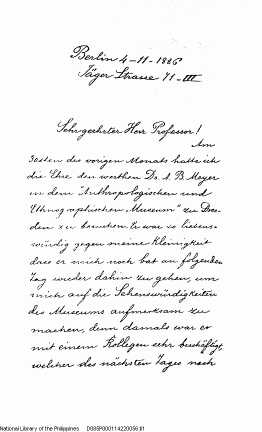 Berlin 4-11-1886
Jäger Strasse 71-III
Sehrgeehrter Herr Professor!
Am
30sten des vorigen Monats hatte ich
die Ehre den werthen Dr. A B Meyer
in dem "Anthropologischen und
Ethnographischen Museum" zu Dres-
den zu besuchen. Er war so liebens-
würdig gegen meine Kleinigkeit
dass er mich noch bat am folgenden
Tag wieder dahin zu gehen, um
mich auf die Sehenswürdigkeiten
des Museums aufmerksam zu
machen, denn damals war er
mit einem Kollegen sehr beschäftigt
welcher des nächsten Tages nach
National Library of the Philippines DS65R00011422005611